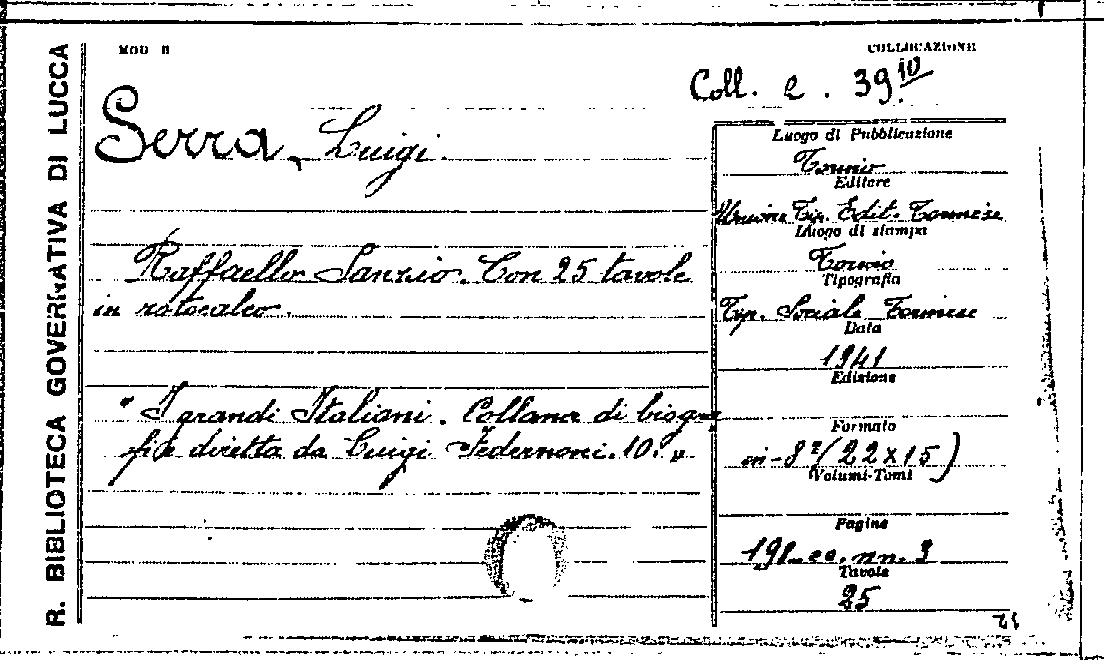 R. BIBLIOTECA GOVERNATIVA DI LUCCA
MOD B
COLLOCAZIONE
Coll. e. 39.10
Serra, Luigi.
Raffaello Sanzio. Con 25 tavole
in rotocalco.
"I grandi Italiani. Collana di biogra
fie diretta da Luigi Federzoni. 10."
Luogo di Pubblicazione
Torino
Editore
Unione Tip. Edit. Torinese
Luogo di stampa
Torino
Tipografia
Tip. Sociale Torinese
Data
1941
Edizione
Formato
in-8º (22x15)
Volumi-Tomi
Pagine
198 cc. nn. 3
Tavole
25